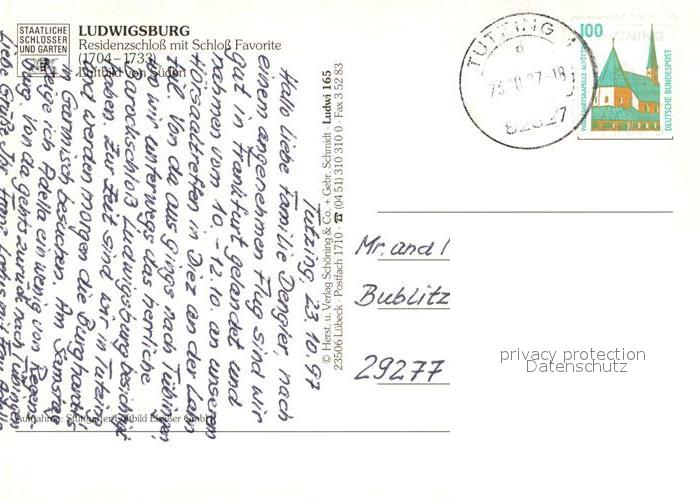 STAATLICHE
SCHLÖSSER
UND GÄRTEN
LUDWIGSBURG
Residenzschloß mit Schloß Favorite
(1704–1733)
Luftbild von Süden
Tutzing, 23.10.97
Hallo liebe Familie Dengler, nach
einem angenehmen Flug sind wir
gut in Frankfurt gelandet und
nahmen vom 10.-12.10. an unserem
in Diez an der Lahn
teil. Von da aus gings nach Tübingen,
wo wir unterwegs das herrliche
Barockschloß Ludwigsburg besichtigt
haben. Zur Zeit sind wir in Tutzing
und werden morgen die Burghardts
in Garmisch besuchen. Am Samstag
zeige ich Adella ein wenig von Regens-
burg. Von da gehts zurück nach Tübingen
Liebe Grüße Ihr
© Herst. u. Verlag Schöning & Co. + Gebr. Schmidt · Ludwi 165
23506 Lübeck · Postfach 1710 · ☎ (04 51) 310 310 0 · Fax 3 52 83
TUTZING 1
d
82327
100
WALLFAHRTSKAPELLE ALTÖTTING
DEUTSCHE BUNDESPOST
Mr. and
Bublitz
29277
privacy protection
Datenschutz
Aufnahme: Stuttgarter Luftbild Elsäßer GmbH